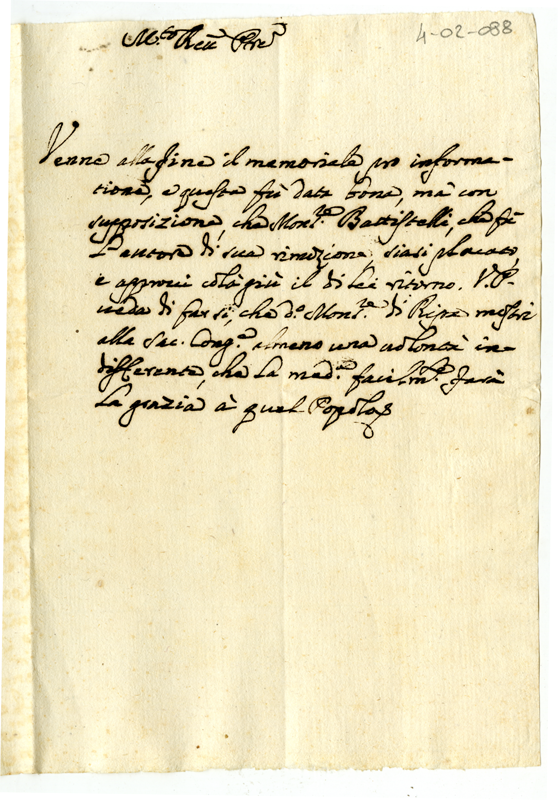 4-02-088
M.to Reu Pre
Venne alla fine il memoriale pro informa-
tione, e questa fù data bona, mà con
supposizione, che Mons.re Battistelli, che fù
l'autore di sua rimozione, siasi placato,
e approvi colà più il di lei ritorno. V.P.
veda di far sì, che d.o Mons.re di Ripa mostri
alla Sac. Cong.e almeno una volontà in-
differente, che la med.a facilm.te farà
la grazia à quel Popolo